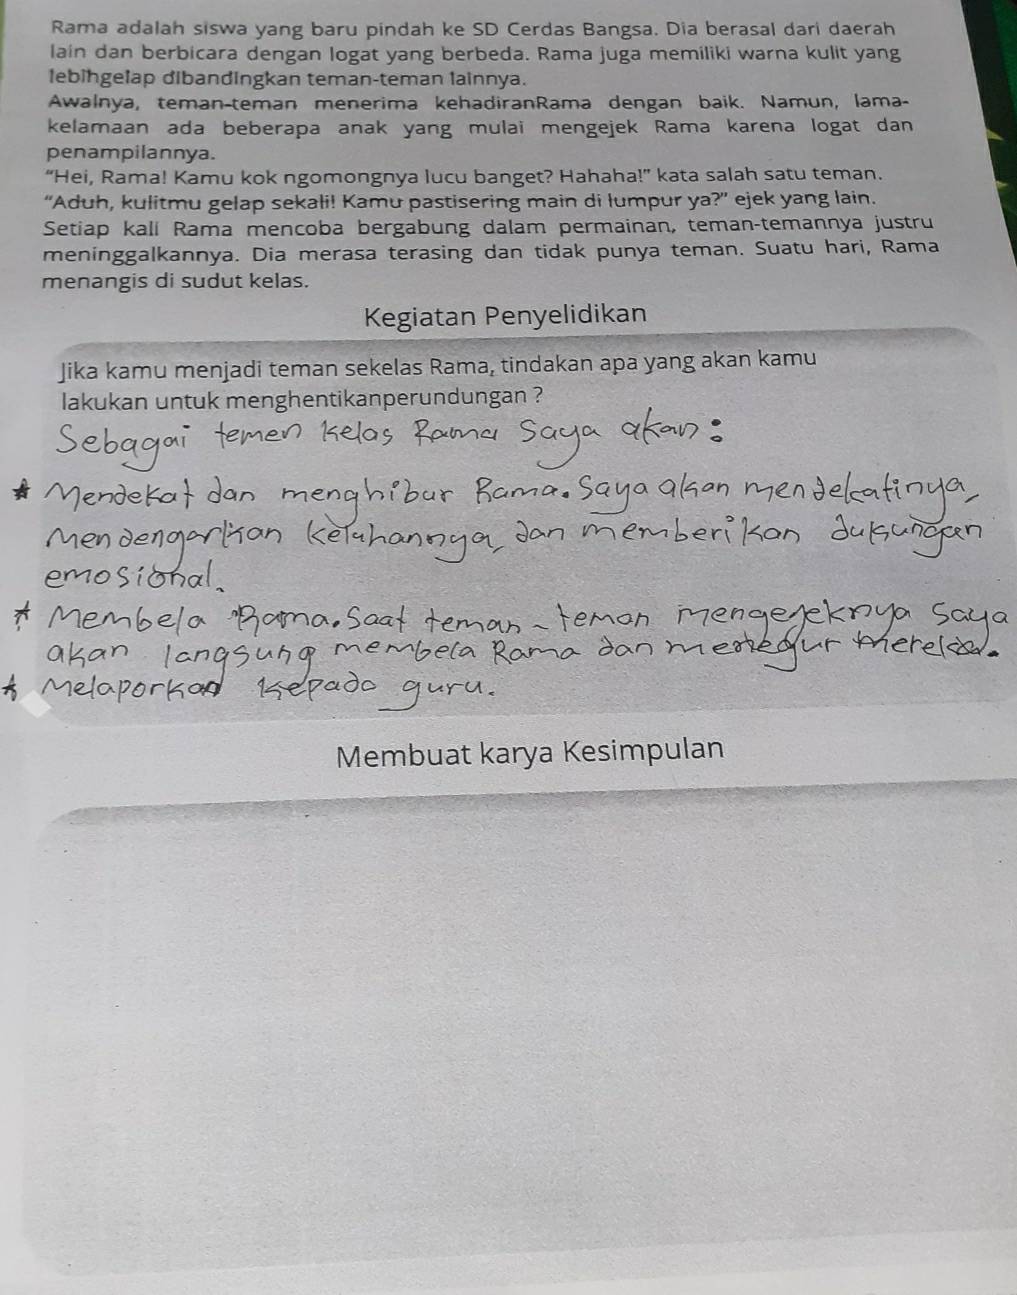 Rama adalah siswa yang baru pindah ke SD Cerdas Bangsa. Dia berasal dari daerah
lain dan berbicara dengan logat yang berbeda. Rama juga memiliki warna kulit yang
lebihgelap dibandingkan teman-teman lainnya.
Awalnya, teman-teman menerima kehadiranRama dengan baik. Namun, lama-
kelamaan ada beberapa anak yang mulai mengejek Rama karena logat dan
penampilannya.
"Hei, Rama! Kamu kok ngomongnya lucu banget? Hahaha!" kata salah satu teman.
"Aduh, kulitmu gelap sekali! Kamu pastisering main di lumpur ya?" ejek yang lain.
Setiap kali Rama mencoba bergabung dalam permainan, teman-temannya justru
meninggalkannya. Dia merasa terasing dan tidak punya teman. Suatu hari, Rama
menangis di sudut kelas.
Kegiatan Penyelidikan
Jika kamu menjadi teman sekelas Rama, tindakan apa yang akan kamu
lakukan untuk menghentikanperundungan ?
Sebagai temen kelas Rama saya akan:
* Mendekat dan menghibur Rama. Saya akan mendekatinya,
mendengarkan keluhannya, dan memberikan dukungan
emosional.
* Membela Rama. Saat teman-teman mengejeknya saya
akan langsung membela Rama dan menegur mereka.
* Melaporkan kepada guru.
Membuat karya Kesimpulan